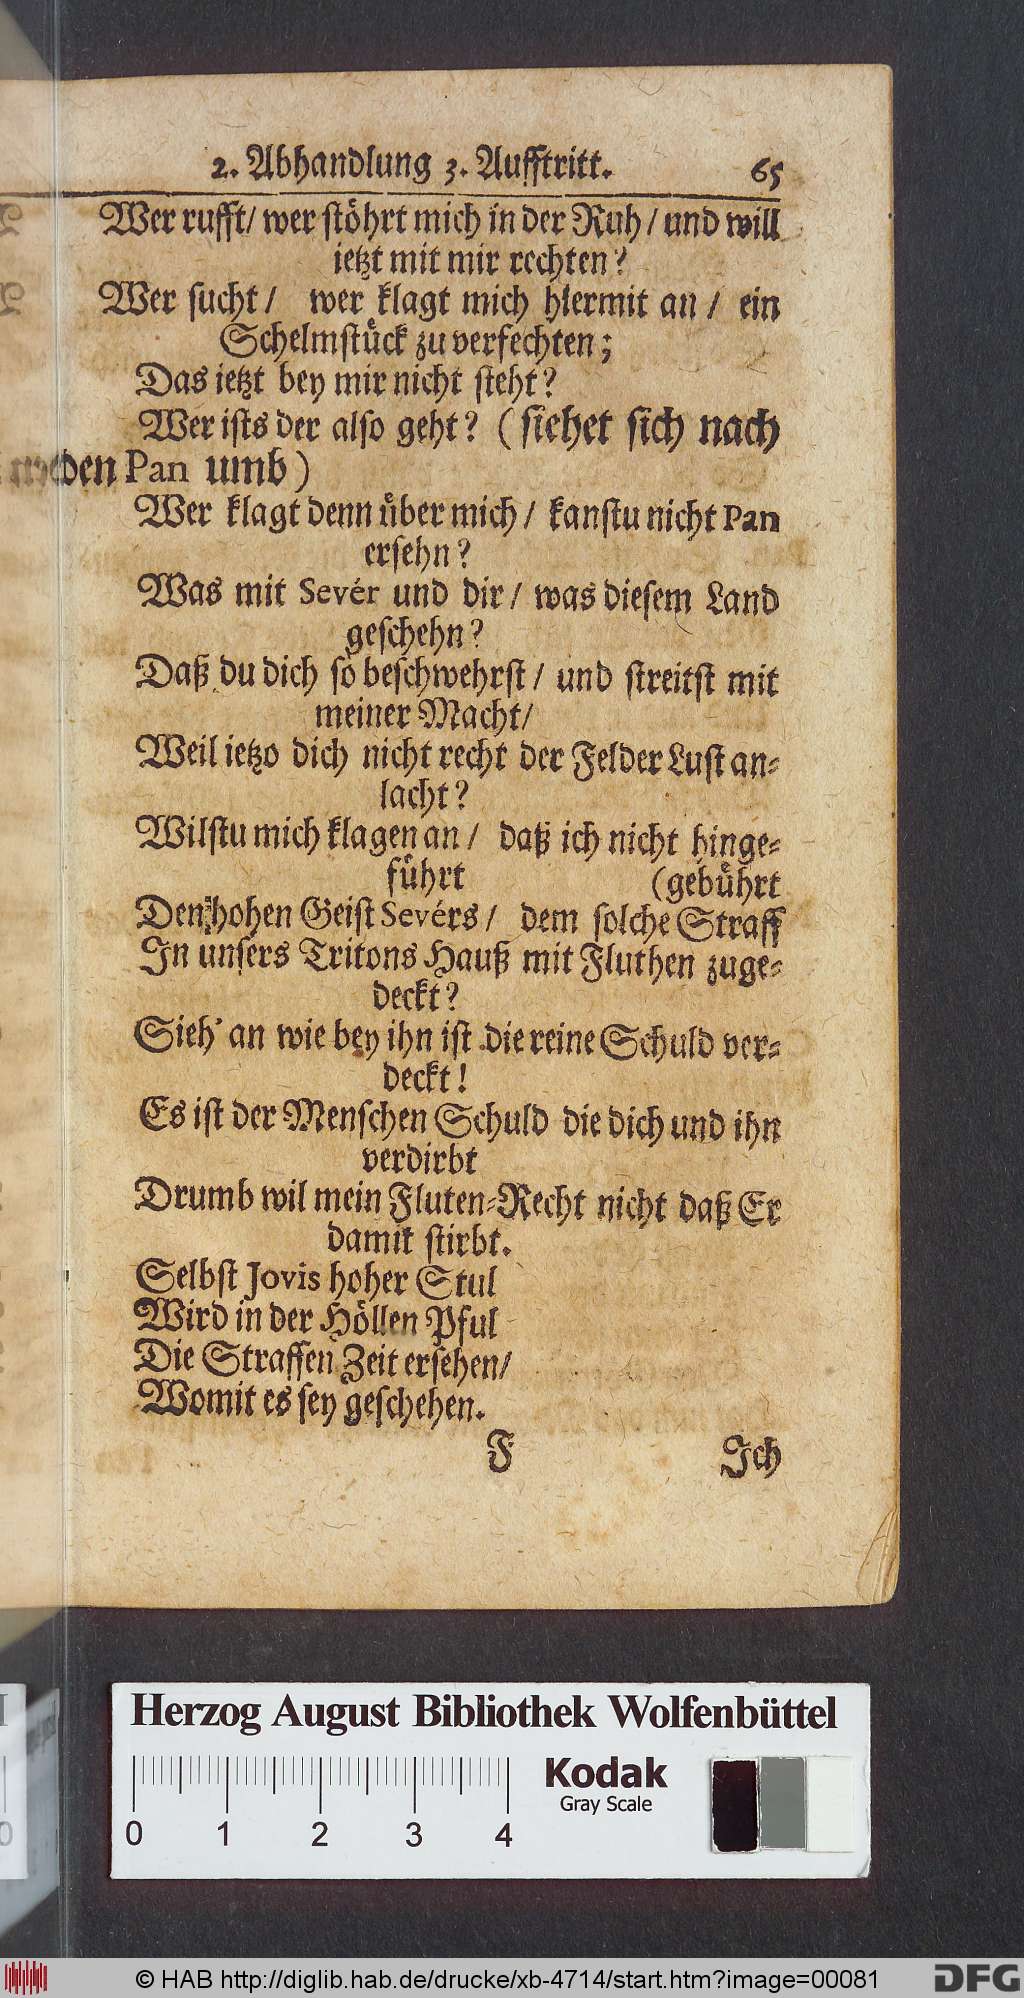 2. Abhandlung 3. Aufftritt. 65
Wer rufft/ wer stöhrt mich in der Ruh/ und will
ietzt mit mir rechten?
Wer sucht/ wer klagt mich hiermit an/ ein
Schelmstück zu verfechten;
Das ietzt bey mir nicht steht?
Wer ists der also geht? (siehet sich nach
den Pan umb)
Wer klagt denn über mich/ kanstu nicht Pan
ersehn?
Was mit Sevér und dir/ was diesem Land
geschehn?
Daß du dich so beschwehrst/ und streitst mit
meiner Macht/
Weil ietzo dich nicht recht der Felder Lust an-
lacht?
Wilstu mich klagen an/ daß ich nicht hinge-
führt (gebührt
Den hohen Geist Sevérs/ dem solche Straff
In unsers Tritons Hauß mit Fluthen zuge-
deckt?
Sieh' an wie bey ihn ist die reine Schuld ver-
deckt!
Es ist der Menschen Schuld die dich und ihn
verdirbt
Drumb wil mein Fluten-Recht nicht daß Er
damit stirbt.
Selbst Jovis hoher Stul
Wird in der Höllen Pful
Die Straffen Zeit ersehen/
Womit es sey geschehen.
F Ich
Herzog August Bibliothek Wolfenbüttel
Kodak
Gray Scale
0 1 2 3 4
© HAB http://diglib.hab.de/drucke/xb-4714/start.htm?image=00081
DFG